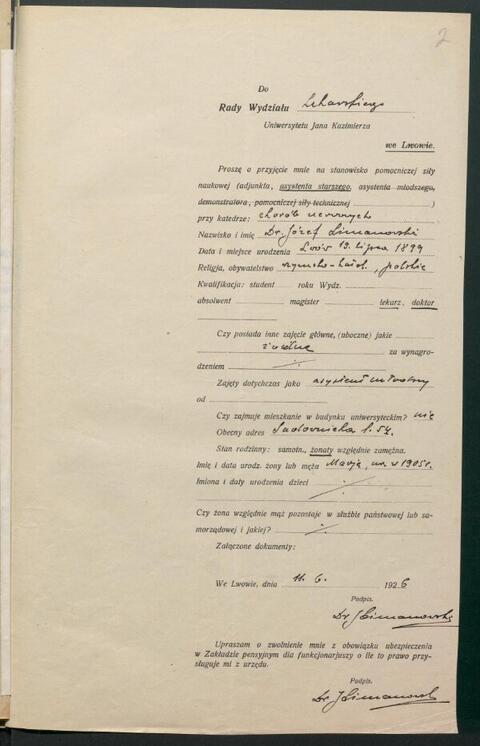 2
Do
Rady Wydziału Lekarskiego
Uniwersytetu Jana Kazimierza
we Lwowie.
Proszę o przyjęcie mnie na stanowisko pomocniczej siły
naukowej (adjunkta, asystenta starszego, asystenta młodszego,
demonstratora, pomocniczej siły technicznej )
przy katedrze: chorób nerwowych
Nazwisko i imię Dr. Józef Limanowski
Data i miejsce urodzenia Lwów 19. lipca 1899
Religja, obywatelstwo rzymsko-katol., polskie
Kwalifikacja: student roku Wydz.
absolwent magister lekarz, doktor
Czy posiada inne zajęcie główne, (uboczne) jakie
żadne za wynagro-
dzeniem
Zajęty dotychczas jako asystent młodszy
od
Czy zajmuje mieszkanie w budynku uniwersyteckim? nie
Obecny adres Sadownicka l. 54.
Stan rodzinny: samotn., żonaty względnie zamężna.
Imię i data urodz. żony lub męża Marja, ur. w 1905 r.
Imiona i daty urodzenia dzieci
Czy żona względnie mąż pozostaje w służbie państwowej lub sa-
morządowej i jakiej?
Załączone dokumenty:
We Lwowie, dnia 11. 6. 1926
Podpis.
Dr JLimanowski
Upraszam o zwolnienie mnie z obowiązku ubezpieczenia
w Zakładzie pensyjnym dla funkcjonarjuszy o ile to prawo przy-
sługuje mi z urzędu.
Podpis.
Dr JLimanowski